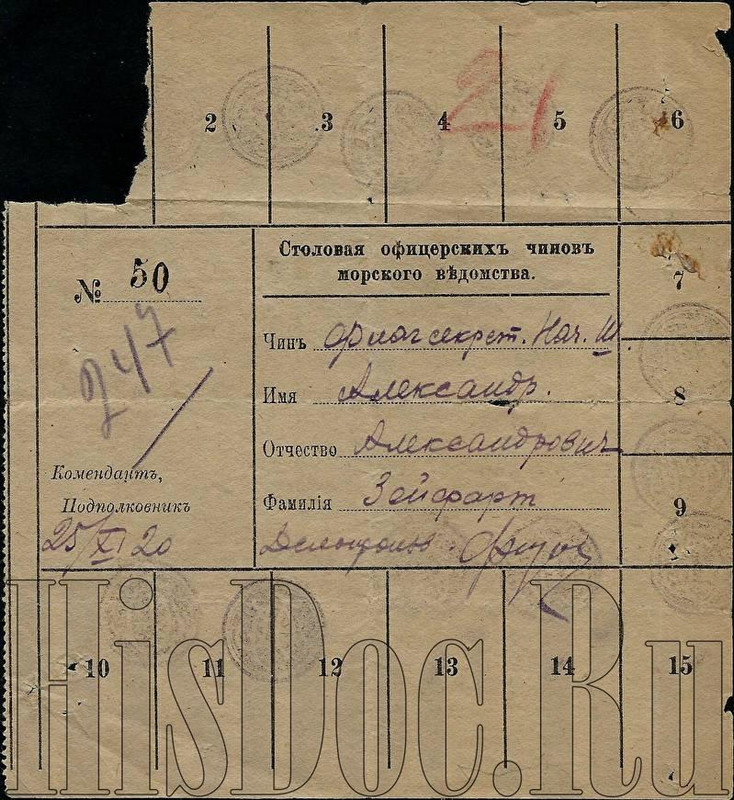 2 3 4 5 6
21
№ 50
247
Комендантъ,
Подполковникъ
25/XI 20
Столовая офицерскихъ чиновъ
морского вѣдомства.
Чинъ Флагсекрет. Нач. Ш.
Имя Александр.
Отчество Александрович
Фамилія Зейфарт
7
8
9
10 11 12 13 14 15
HisDoc.Ru